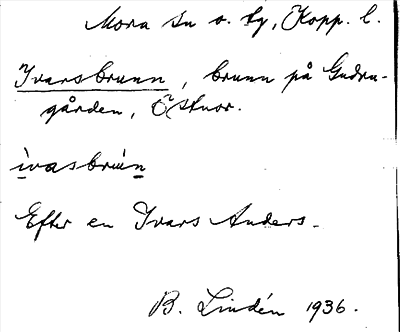 Mora sn o. by, Kopp. l.
Ivarsbrunn, brunn på Gudru-
gården, Östnor.
ivasbrún
Efter en Ivars Anders.
B. Lindén 1936.